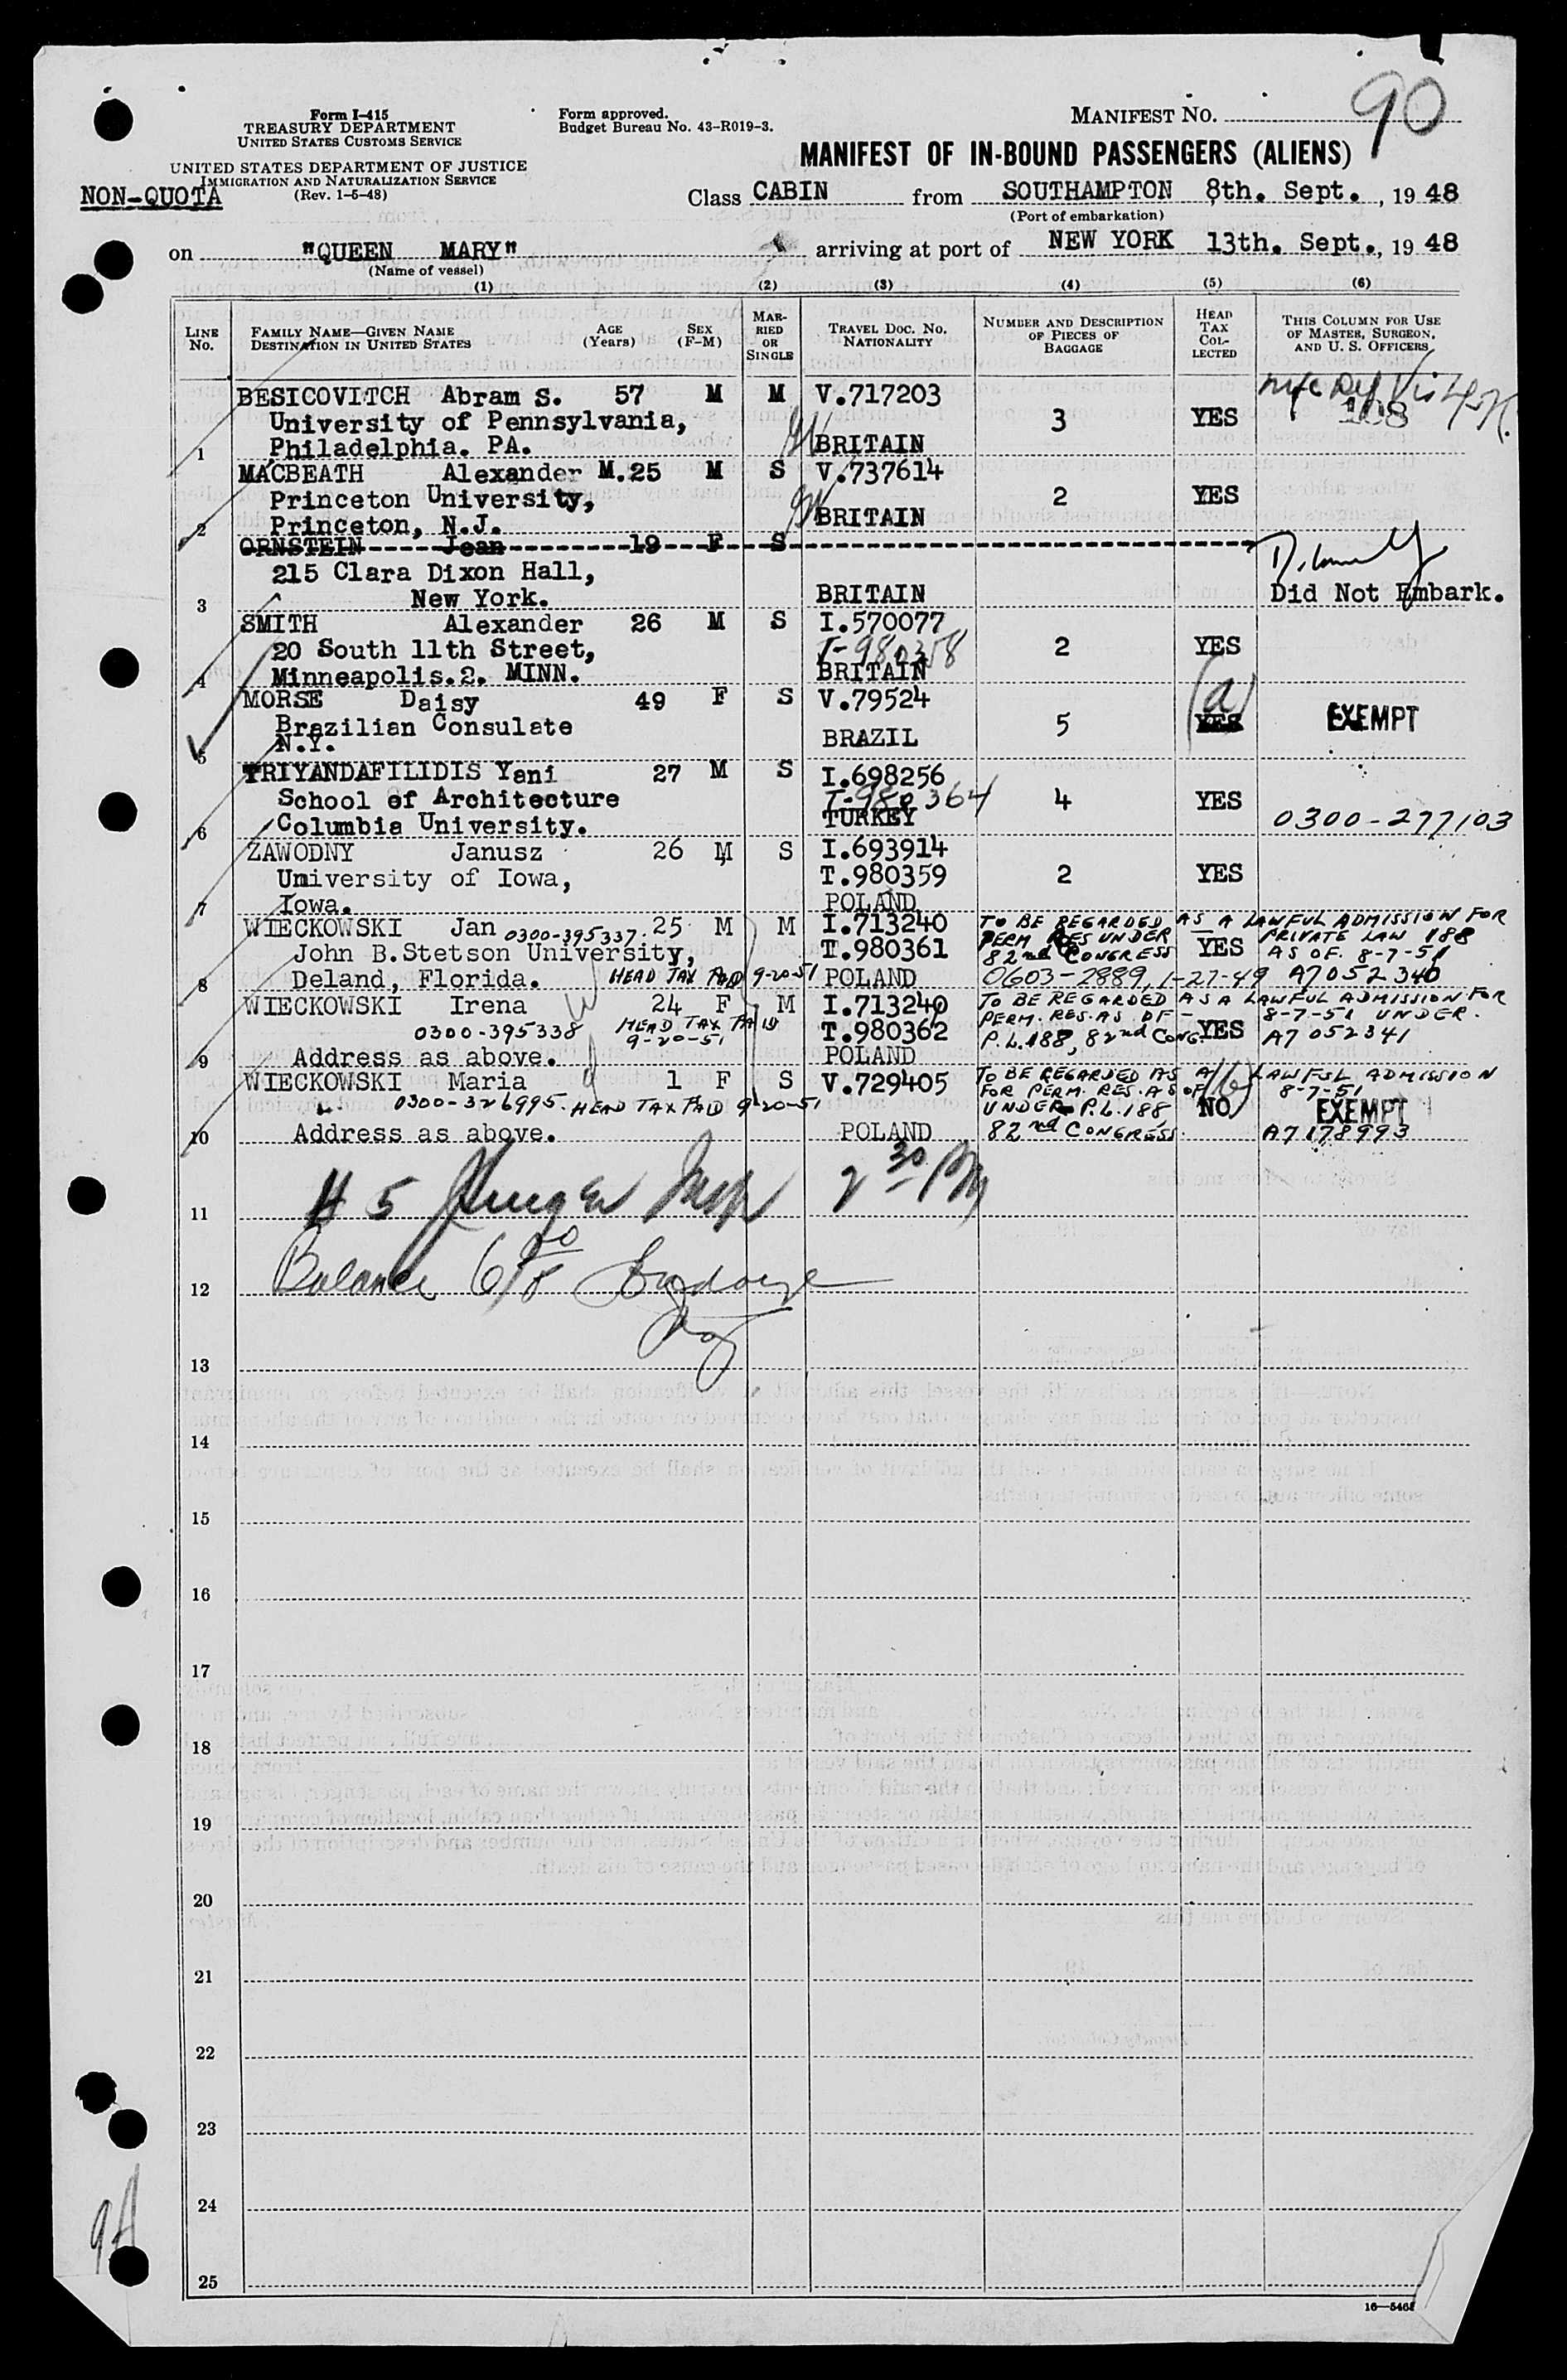 90
Form I-415
TREASURY DEPARTMENT
UNITED STATES CUSTOMS SERVICE
Form approved.
Budget Bureau No. 43-R019-3.
MANIFEST NO.
UNITED STATES DEPARTMENT OF JUSTICE
IMMIGRATION AND NATURALIZATION SERVICE
(Rev. 1-5-48)
NON-QUOTA
MANIFEST OF IN-BOUND PASSENGERS (ALIENS)
Class CABIN from SOUTHAMPTON 8th. Sept., 1948
(Port of embarkation)
on "QUEEN MARY" arriving at port of NEW YORK 13th. Sept., 1948
(Name of vessel)
(1) (2) (3) (4) (5) (6)
LINE No.
FAMILY NAME—GIVEN NAME
DESTINATION IN UNITED STATES
AGE (Years)
SEX (F-M)
MARRIED OR SINGLE
TRAVEL DOC. NO. NATIONALITY
NUMBER AND DESCRIPTION OF PIECES OF BAGGAGE
HEAD TAX COLLECTED
THIS COLUMN FOR USE OF MASTER, SURGEON, AND U. S. OFFICERS
BESICOVITCH Abram S. 57 M M V.717203
University of Pennsylvania, 3 YES 108
1 Philadelphia. PA. BRITAIN
MACBEATH Alexander M. 25 M S V.737614
Princeton University, 2 YES
2 Princeton, N.J. BRITAIN
ORNSTEIN Jean 19 F S
215 Clara Dixon Hall,
3 New York. BRITAIN Did Not Embark.
SMITH Alexander 26 M S I.570077
20 South 11th Street, T-980358 2 YES
4 Minneapolis.2. MINN. BRITAIN
MORSE Daisy 49 F S V.79524 (a)
Brazilian Consulate 5 YES EXEMPT
5 N.Y. BRAZIL
TRIYANDAFILIDIS Yani 27 M S I.698256
School of Architecture T-980364 4 YES
6 Columbia University. TURKEY 0300-277103
ZAWODNY Janusz 26 M S I.693914
University of Iowa, T.980359 2 YES
7 Iowa. POLAND
WIECKOWSKI Jan 0300-395337. 25 M M I.713240 TO BE REGARDED AS A LAWFUL ADMISSION FOR
John B.Stetson University, T.980361 PERM RES UNDER YES PRIVATE LAW 188
82nd CONGRESS AS OF. 8-7-51
8 Deland, Florida. HEAD TAX PAID 9-20-51 POLAND 0603-2889, 1-27-49 A7052340
WIECKOWSKI Irena 24 F M I.713240 TO BE REGARDED AS A LAWFUL ADMISSION FOR
0300-395338 HEAD TAX PAID 9-20-51 T.980362 PERM. RES. AS OF - 8-7-51 UNDER.
P.L.188, 82nd CONG. YES A7 052341
9 Address as above. POLAND
WIECKOWSKI Maria 1 F S V.729405 TO BE REGARDED AS A LAWFUL ADMISSION
0300-326995. HEAD TAX PAID 9-20-51 FOR PERM. RES. AS OF (b) 8-7-51
UNDER P.L.188 NO EXEMPT
10 Address as above. POLAND 82nd CONGRESS A7178993
11 # 5 2 30 PM
12 Balance
13
14
15
16
17
18
19
20
21
22
23
24
25